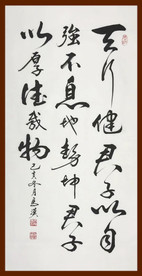 天行健君子以自
強不息地勢坤君子
以厚德載物
己亥冬月